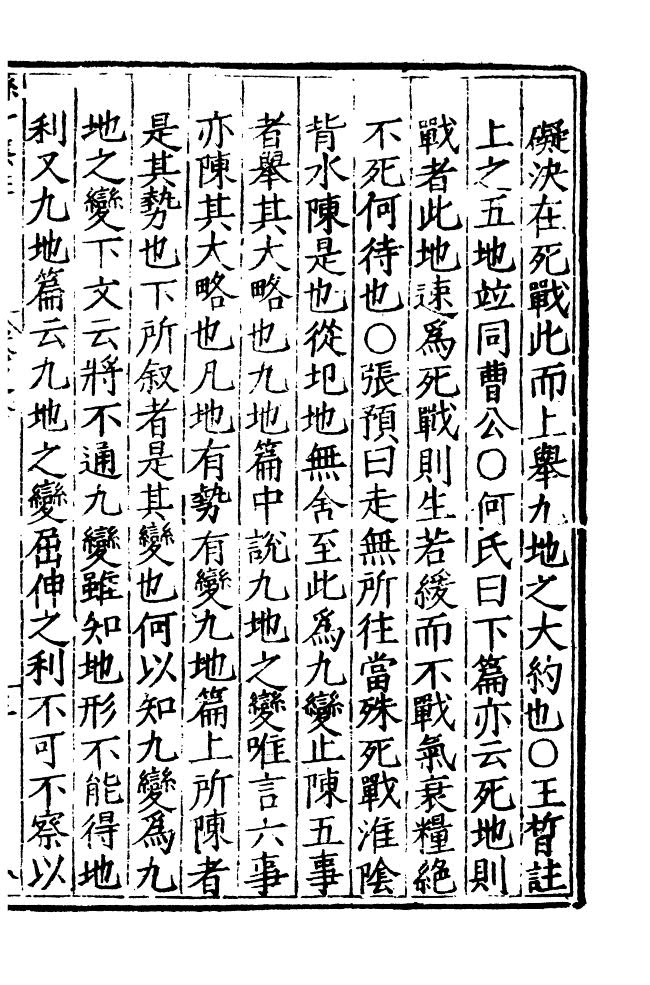 礙決在死戰此而上舉九地之大約也○王晳註
上之五地竝同曹公○何氏曰下篇亦云死地則
戰者此地速爲死戰則生若緩而不戰氣衰糧絶
不死何待也○張預曰走無所往當殊死戰淮陰
背水陳是也從圯地無舍至此爲九變止陳五事
者舉其大略也九地篇中說九地之變唯言六事
亦陳其大略也凡地有勢有變九地篇上所陳者
是其勢也下所叙者是其變也何以知九變爲九
地之變下文云將不通九變雖知地形不能得地
利又九地篇云九地之變屈伸之利不可不察以